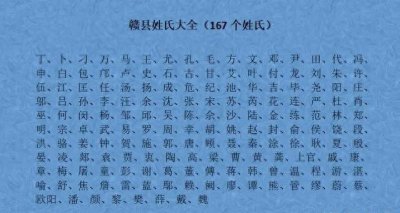 赣县姓氏大全（167个姓氏）
丁、卜、刁、万、马、王、尤、孔、毛、方、文、邓、尹、田、代、冯、
申、白、包、邝、卢、史、石、古、甘、艾、叶、付、龙、刘、朱、许、
伍、江、匡、任、汤、扬、成、危、纪、池、华、吉、毕、尧、阳、庄、
邬、吕、孙、李、汪、余、沈、张、宋、苏、芮、花、连、严、杜、肖、
巫、何、闵、杨、邹、邱、吴、陈、余、沙、陆、金、练、范、林、郑、
明、宗、卓、武、易、罗、周、幸、胡、姚、赵、封、俞、侯、饶、段、
洪、骆、姜、钟、贺、施、郭、唐、顾、聂、秦、涂、徐、耿、夏、殷、
晏、凌、郯、袁、贾、衷、陶、高、梁、曹、黄、龚、上官、戚、康、
章、梅、屠、童、彭、谢、葛、董、傅、蒋、韩、曾、温、程、游、湛、
喻、舒、焦、詹、雷、蓝、鄢、赖、阙、廖、谭、熊、管、缪、蔚、蔡、
欧阳、潘、颜、黎、樊、薛、戴、魏